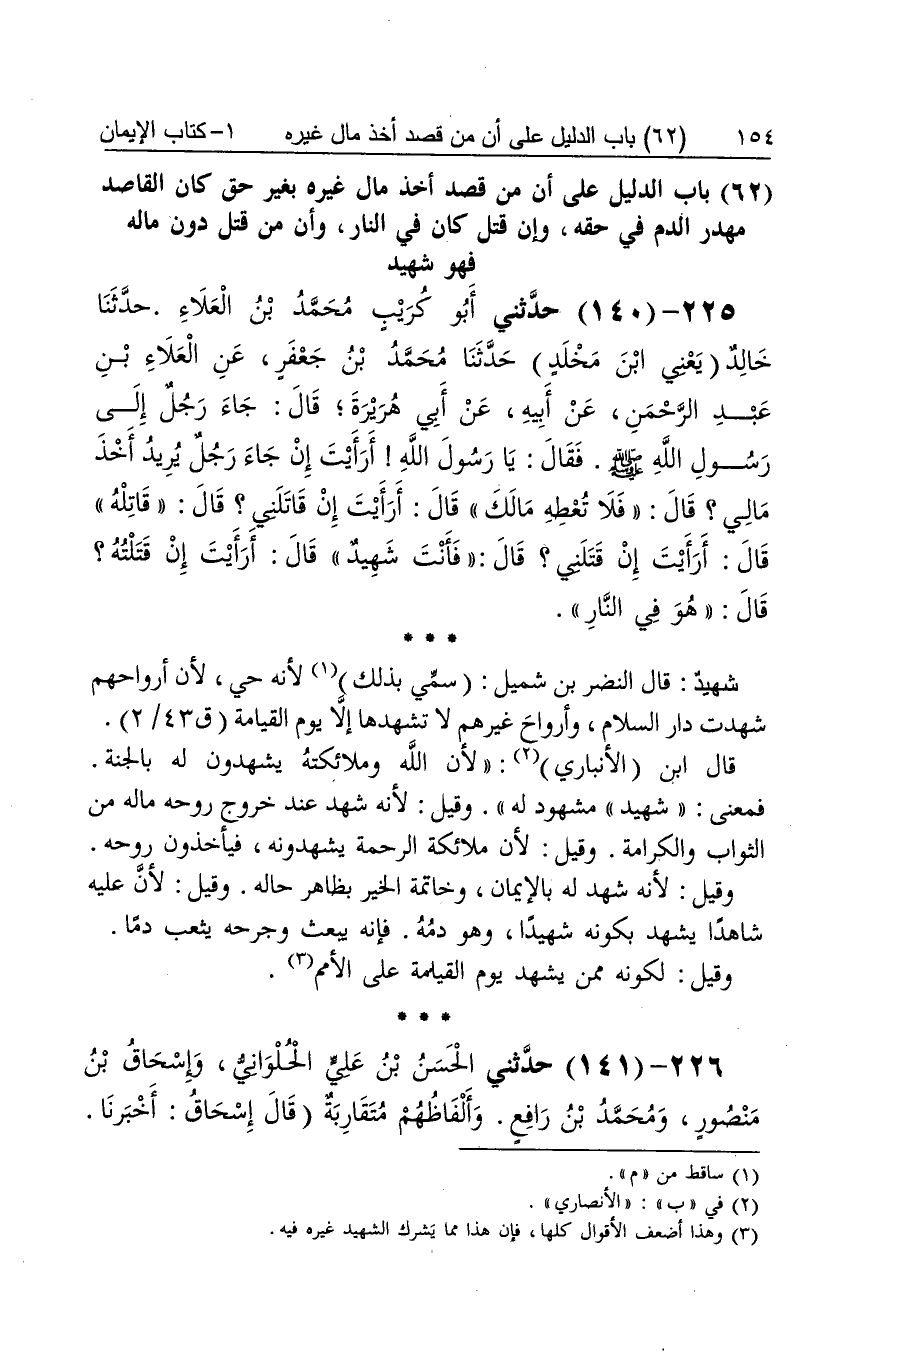 ١٥٤ (٦٢) باب الدليل على أن من قصد أخذ مال غيره ١- كتاب الإيمان
(٦٢) باب الدليل على أن من قصد أخذ مال غيره بغير حق كان القاصد
مهدر الدم في حقه ، وإن قتل كان في النار ، وأن من قتل دون ماله
فهو شهيد
٢٢٥-(١٤٠) حدَّثني أَبُو كُرَيْبٍ مُحَمَّدُ بْنُ الْعَلَاءِ . حدَّثَنَا
خَالِدٌ ( يَعْنِي ابْنَ مَخْلَدٍ ) حَدَّثَنَا مُحَمَّدُ بْنُ جَعْفَرٍ ، عَنِ الْعَلَاءِ بْنِ
عَبْدِ الرَّحْمَنِ ، عَنْ أَبِيهِ ، عَنْ أَبِي هُرَيْرَةَ ؛ قَالَ : جَاءَ رَجُلٌ إِلَى
رَسُولِ اللَّهِ ﷺ . فَقَالَ : يَا رَسُولَ اللَّهِ ! أَرَأَيْتَ إِنْ جَاءَ رَجُلٌ يُرِيدُ أَخْذَ
مَالِي ؟ قَالَ : « فَلَا تُعْطِهِ مَالَكَ » قَالَ : أَرَأَيْتَ إِنْ قَاتَلَنِي ؟ قَالَ : « قَاتِلْهُ »
قَالَ : أَرَأَيْتَ إِنْ قَتَلَنِي ؟ قَالَ :« فَأَنْتَ شَهِيدٌ » قَالَ : أَرَأَيْتَ إِنْ قَتَلْتُهُ ؟
قَالَ : « هُوَ فِي النَّارِ » .
* * *
شهيدٌ : قال النضر بن شميل : ( سمِّي بذلك )(١) لأنه حي ، لأن أرواحهم
شهدت دار السلام ، وأرواحَ غيرهم لا تشهدها إلَّا يوم القيامة ( ق٤٣/ ٢) .
قال ابن ( الأنباري )(٢) : « لأن اللَّه وملائكتهُ يشهدون له بالجنة .
فمعنى : « شهيد » مشهود له » . وقيل : لأنه شهد عند خروج روحه ماله من
الثواب والكرامة . وقيل : لأن ملائكة الرحمة يشهدونه ، فيأخذون روحه .
وقيل : لأنه شهد له بالإيمان ، وخاتمة الخير بظاهر حاله . وقيل : لأنَّ عليه
شاهدًا يشهد بكونه شهيدًا ، وهو دمُهُ . فإنه يبعث وجرحه يثعب دمًا .
وقيل : لكونه ممن يشهد يوم القيامة على الأمم(٣) .
* * *
٢٢٦-(١٤١) حدَّثني الْحَسَنُ بْنُ عَلِيٍّ الْحُلْوَانِيُّ ، وَإِسْحَاقُ بْنُ
مَنْصُورٍ ، وَمُحَمَّدُ بْنُ رَافِعٍ . وَأَلْفَاظُهُمْ مُتَقَارِبَةٌ ( قَالَ إِسْحَاقُ : أَخْبَرَنَا .
(١) ساقط من «م» .
(٢) في «ب» : «الأنصاري» .
(٣) وهذا أضعف الأقوال كلها ، فإن هذا مما يَشرك الشهيد غيره فيه .